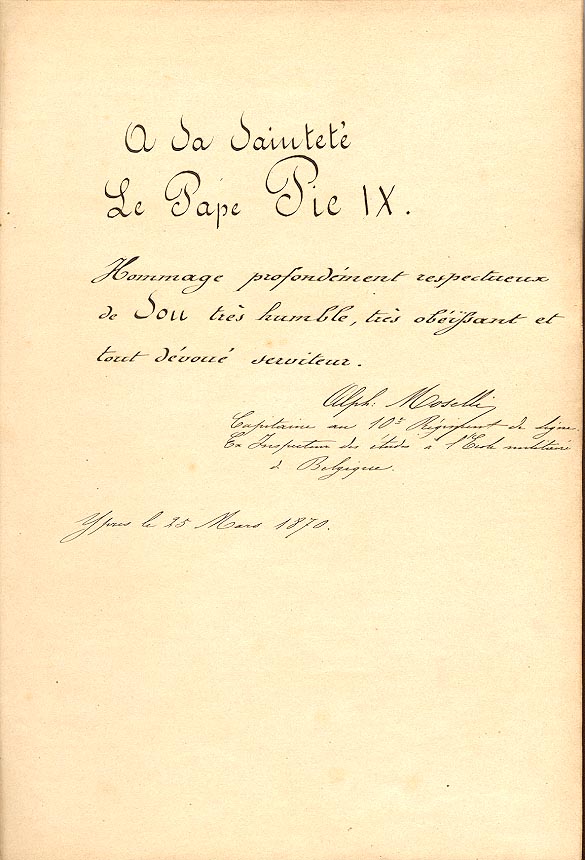 A Sa Sainteté
Le Pape Pie IX.
Hommage profondément respectueux
de Son très humble, très obéißant et
tout dévoué serviteur.
Alph: Moselli
Capitaine au 10e Régiment de ligne.
Ex Inspecteur des études à l'Ecole militaire
de Belgique.
Ypres le 25 Mars 1870.